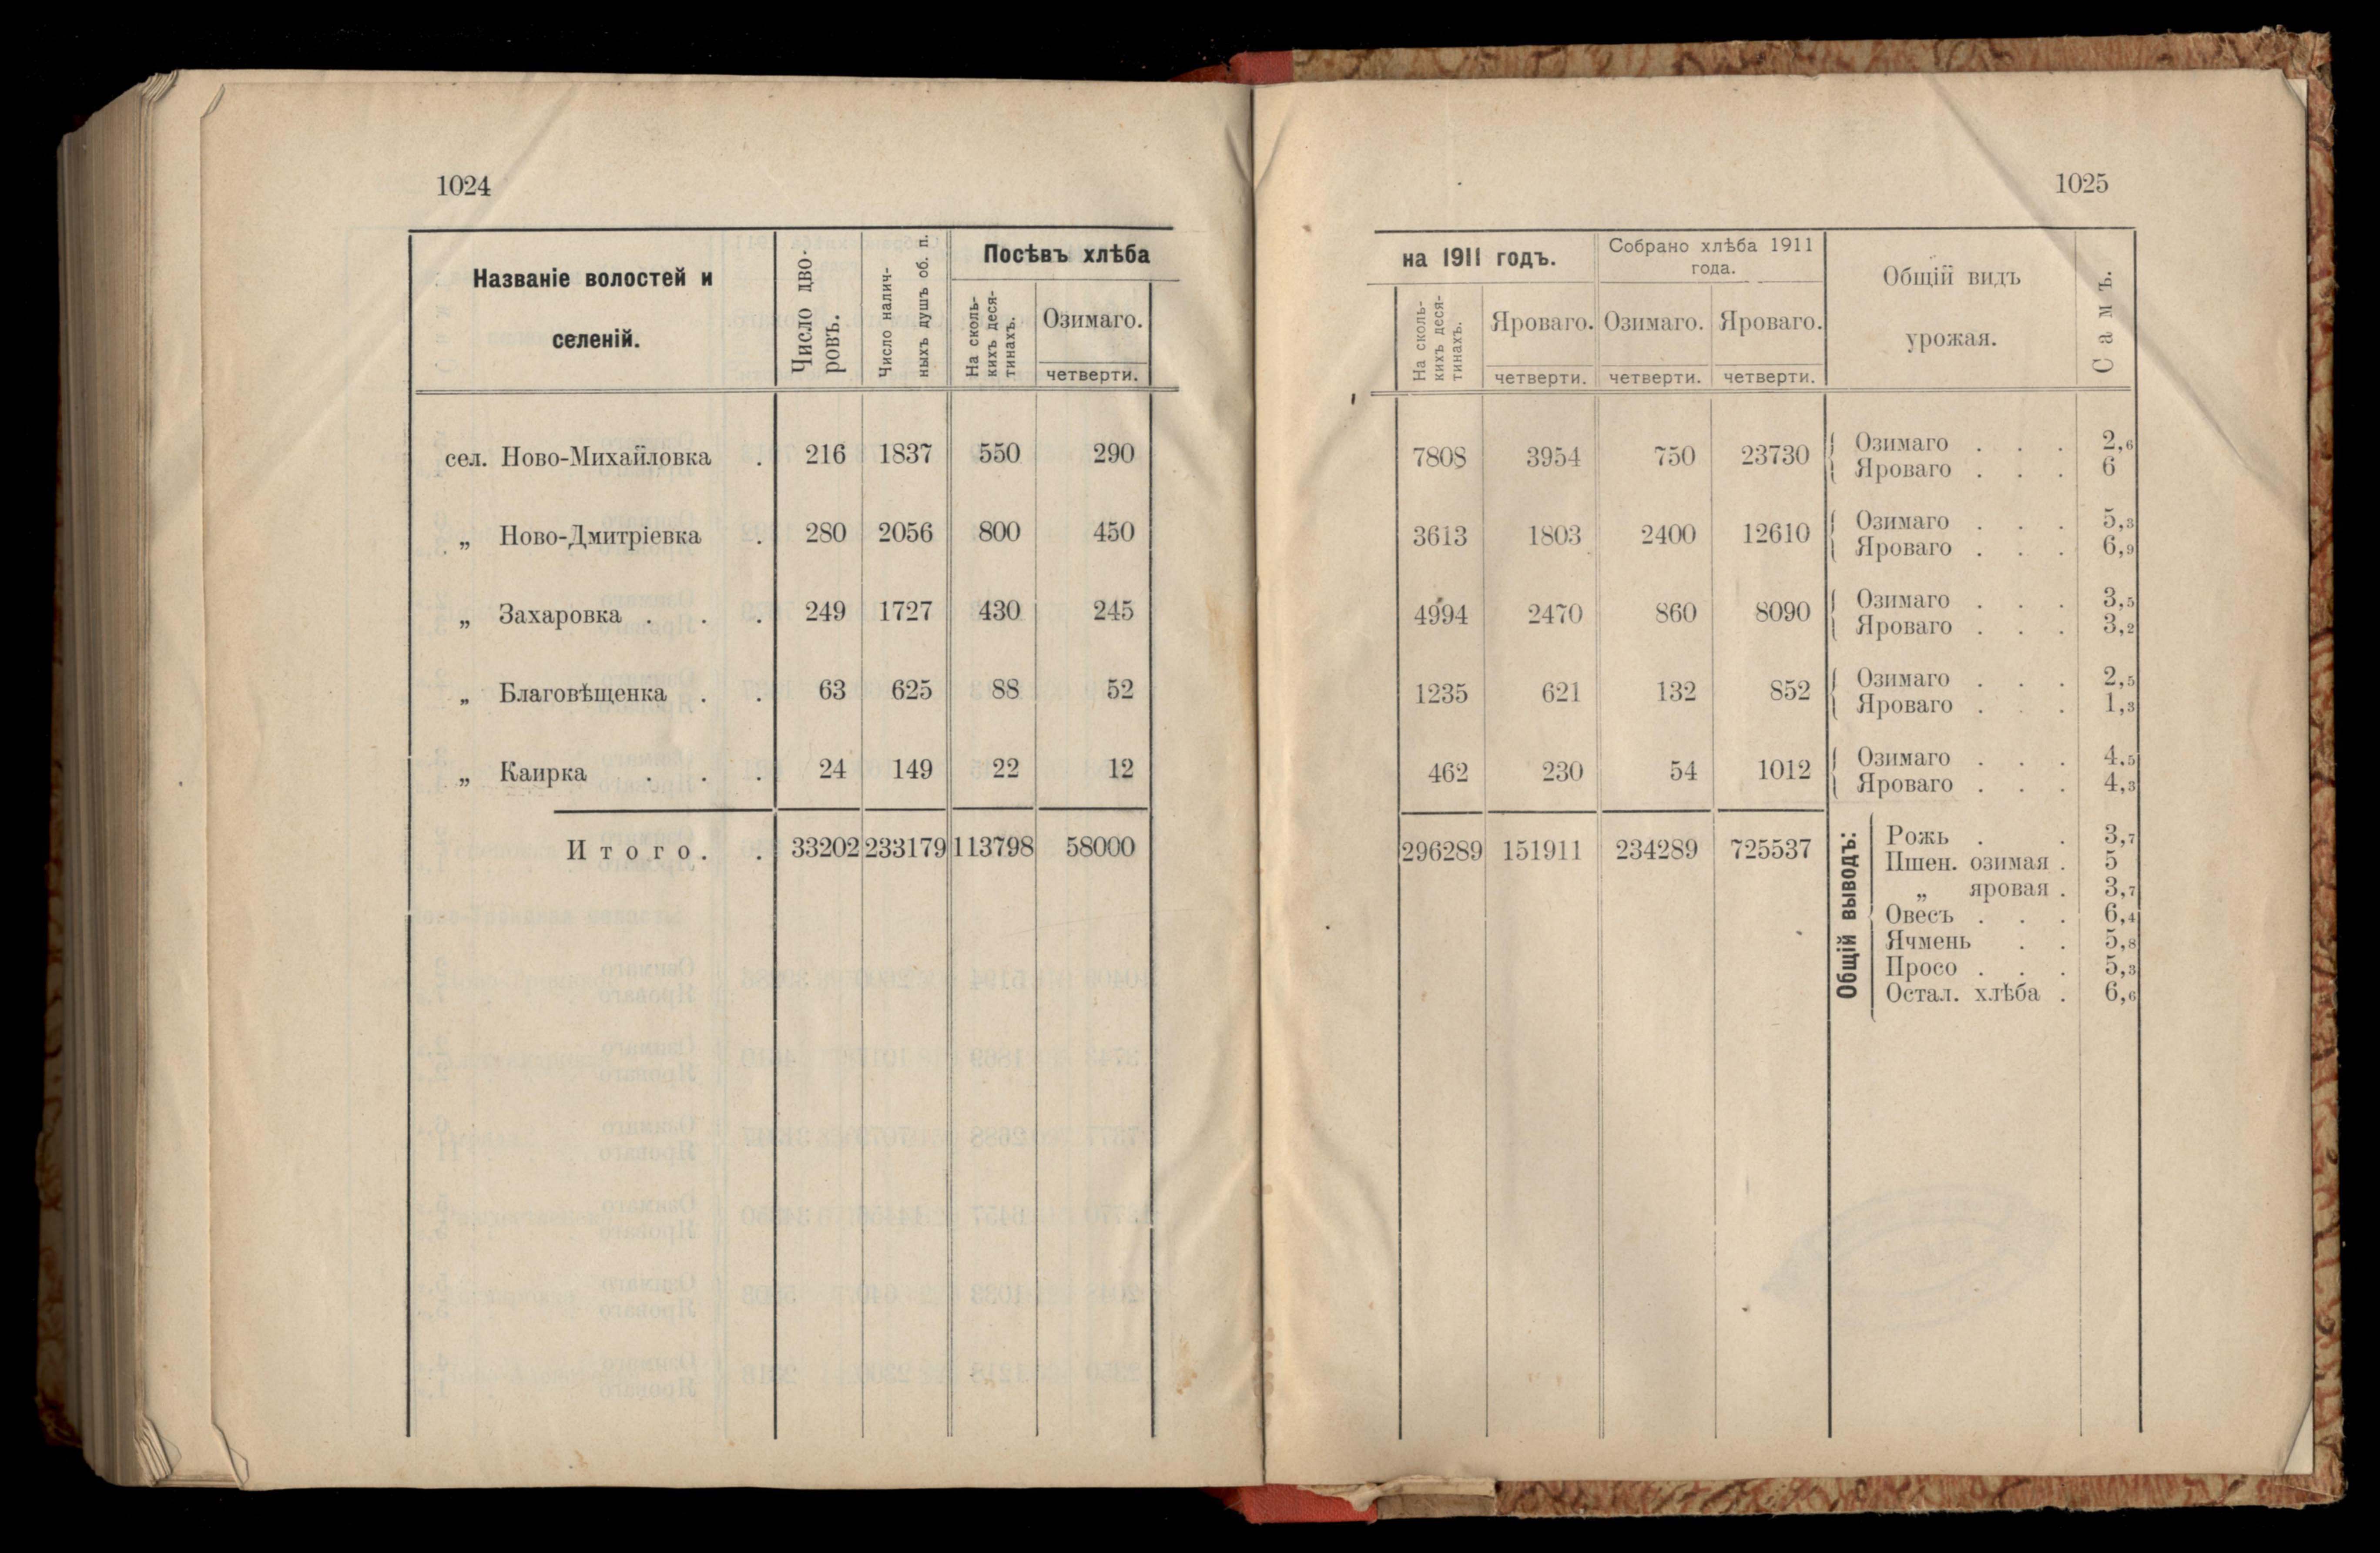 1024
Названіе волостей и
селеній.
Число дво-
ровъ.
Число налич-
ныхъ душъ об. п.
Посѣвъ хлѣба
На сколь-
кихъ деся-
тинахъ.
Озимаго.
четверти.
сел. Ново-Михайловка . 216 1837 550 290
„ Ново-Дмитріевка . 280 2056 800 450
„ Захаровка . . . 249 1727 430 245
„ Благовѣщенка . . 63 625 88 52
„ Каирка . . . 24 149 22 12
Итого. . 33202 233179 113798 58000
1025
на 1911 годъ.
Собрано хлѣба 1911
года.
Общій видъ
урожая.
Самъ.
На сколь-
кихъ деся-
тинахъ.
Яроваго. Озимаго. Яроваго.
четверти. четверти. четверти.
7808 3954 750 23730
Озимаго . . . 2,6
Яроваго . . . 6
3613 1803 2400 12610
Озимаго . . . 5,3
Яроваго . . . 6,9
4994 2470 860 8090
Озимаго . . . 3,5
Яроваго . . . 3,2
1235 621 132 852
Озимаго . . . 2,5
Яроваго . . . 1,3
462 230 54 1012
Озимаго . . . 4.5
Яроваго . . . 4,3
296289 151911 234289 725537
Общій выводъ:
Рожь . . 3,7
Пшен. озимая . 5
„ яровая . 3,7
Овесъ . . . 6,4
Ячмень . . 5,8
Просо . . . 5,3
Остал. хлѣба . 6,6